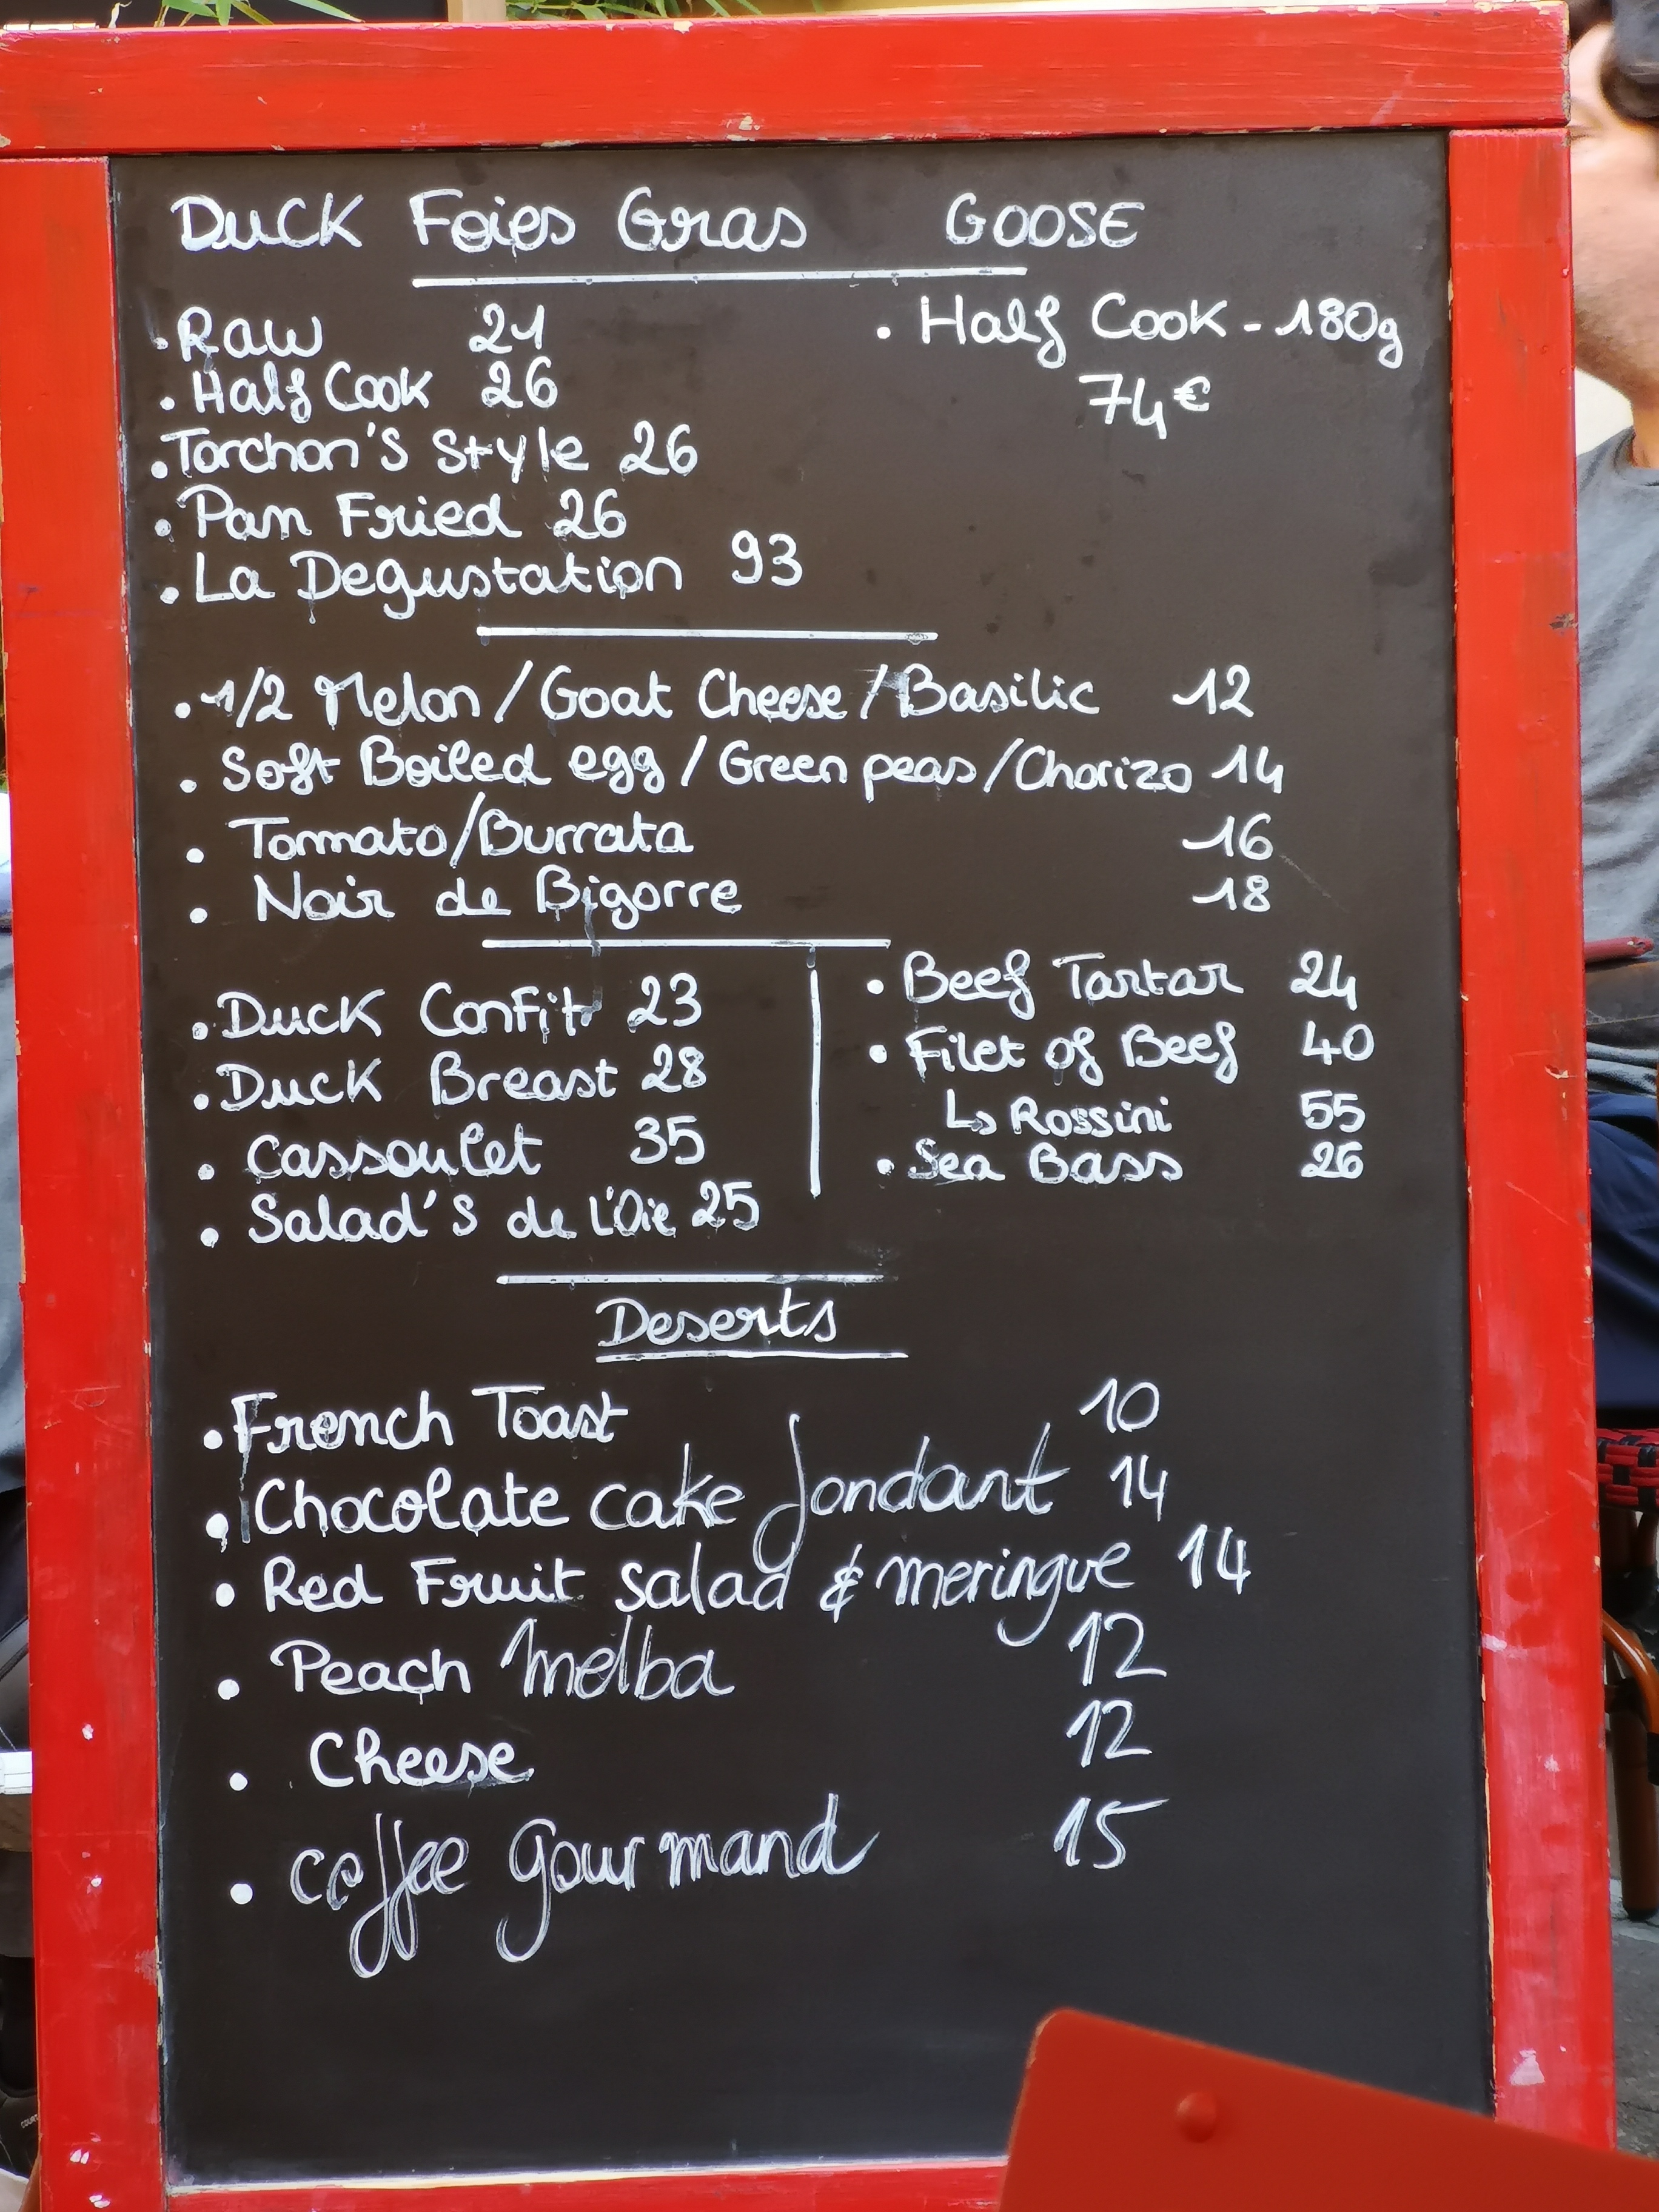 Duck Foies Gras GOOSE
. Raw 21
. Half Cook 26
. Torchon's Style 26
. Pan Fried 26
. La Degustation 93
. Half Cook - 180g
74€
. 1/2 Melon / Goat Cheese / Basilic 12
. Soft Boiled egg / Green peas / Chorizo 14
. Tomato/Burrata 16
. Noir de Bigorre 18
. Duck Confit 23
. Duck Breast 28
. Cassoulet 35
. Salad's de L'Oie 25
. Beef Tartar 24
. Filet of Beef 40
↳ Rossini 55
. Sea Bass 26
Deserts
. French Toast 10
. Chocolate cake fondant 14
. Red Fruit salad & meringue 14
. Peach melba 12
. Cheese 12
. coffee gourmand 15